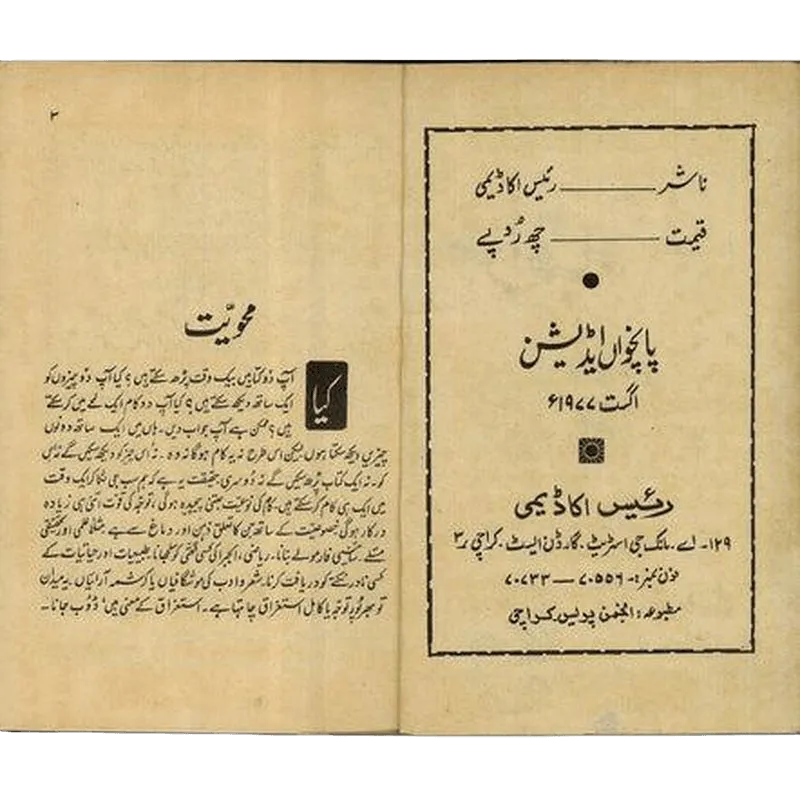 ناشر ——— رئیس اکاڈیمی
قیمت ——— چھ رُوپے
پانچواں ایڈیشن
اگست ۱۹۷۷ء
رئیس اکاڈیمی
۱۲۹- اے۔ مانک جی اسٹریٹ۔ گارڈن ایسٹ۔ کراچی ۳
فون نمبر:- ۷۰۵۵۶ — ۷۰۷۳۳
مطبوعہ: انجمن پریس کراچی
۳
محویّت
کیا آپ دو کتابیں بیک وقت پڑھ سکتے ہیں؟ کیا آپ دو چیزوں کو
ایک ساتھ دیکھ سکتے ہیں؟ کیا آپ دو کام ایک لمحے میں کر سکتے
ہیں؟ ممکن ہے آپ جواب دیں۔ ہاں میں ایک ساتھ دونوں
چیزیں دیکھ سکتا ہوں لیکن اس طرح نہ یہ کام ہوگا نہ وہ۔ نہ اس چیز کو دیکھ سکیں گے نہ اُس
کو۔ نہ ایک کتاب پڑھ سکیں گے نہ دُوسری حقیقت یہ ہے کہ ہم سب جی لگا کر ایک وقت
میں ایک ہی کام کر سکتے ہیں۔ کام کی نوعیت جتنی سنجیدہ ہوگی، توجہ کی قوت اتنی ہی زیادہ
درکار ہوگی خصوصیت کے ساتھ جن کا تعلق ذہن اور دماغ سے ہے مثلاً علمی اور تحقیقی
مسئلے۔ سائنسی فارمولے بنانا۔ ریاضی، الجبرا کی کسی گتھی کو سلجھانا، طبیعیات اور حیاتیات کے
کسی نادر نکتے کو دریافت کرنا۔ شعر و ادب کی موشگافیاں یا کرشمہ آرائیاں۔ یہ میدان
تو بھرپُور توجہ یا کامل استغراق چاہتا ہے۔ استغراق کے معنی ہیں، ڈوب جانا۔